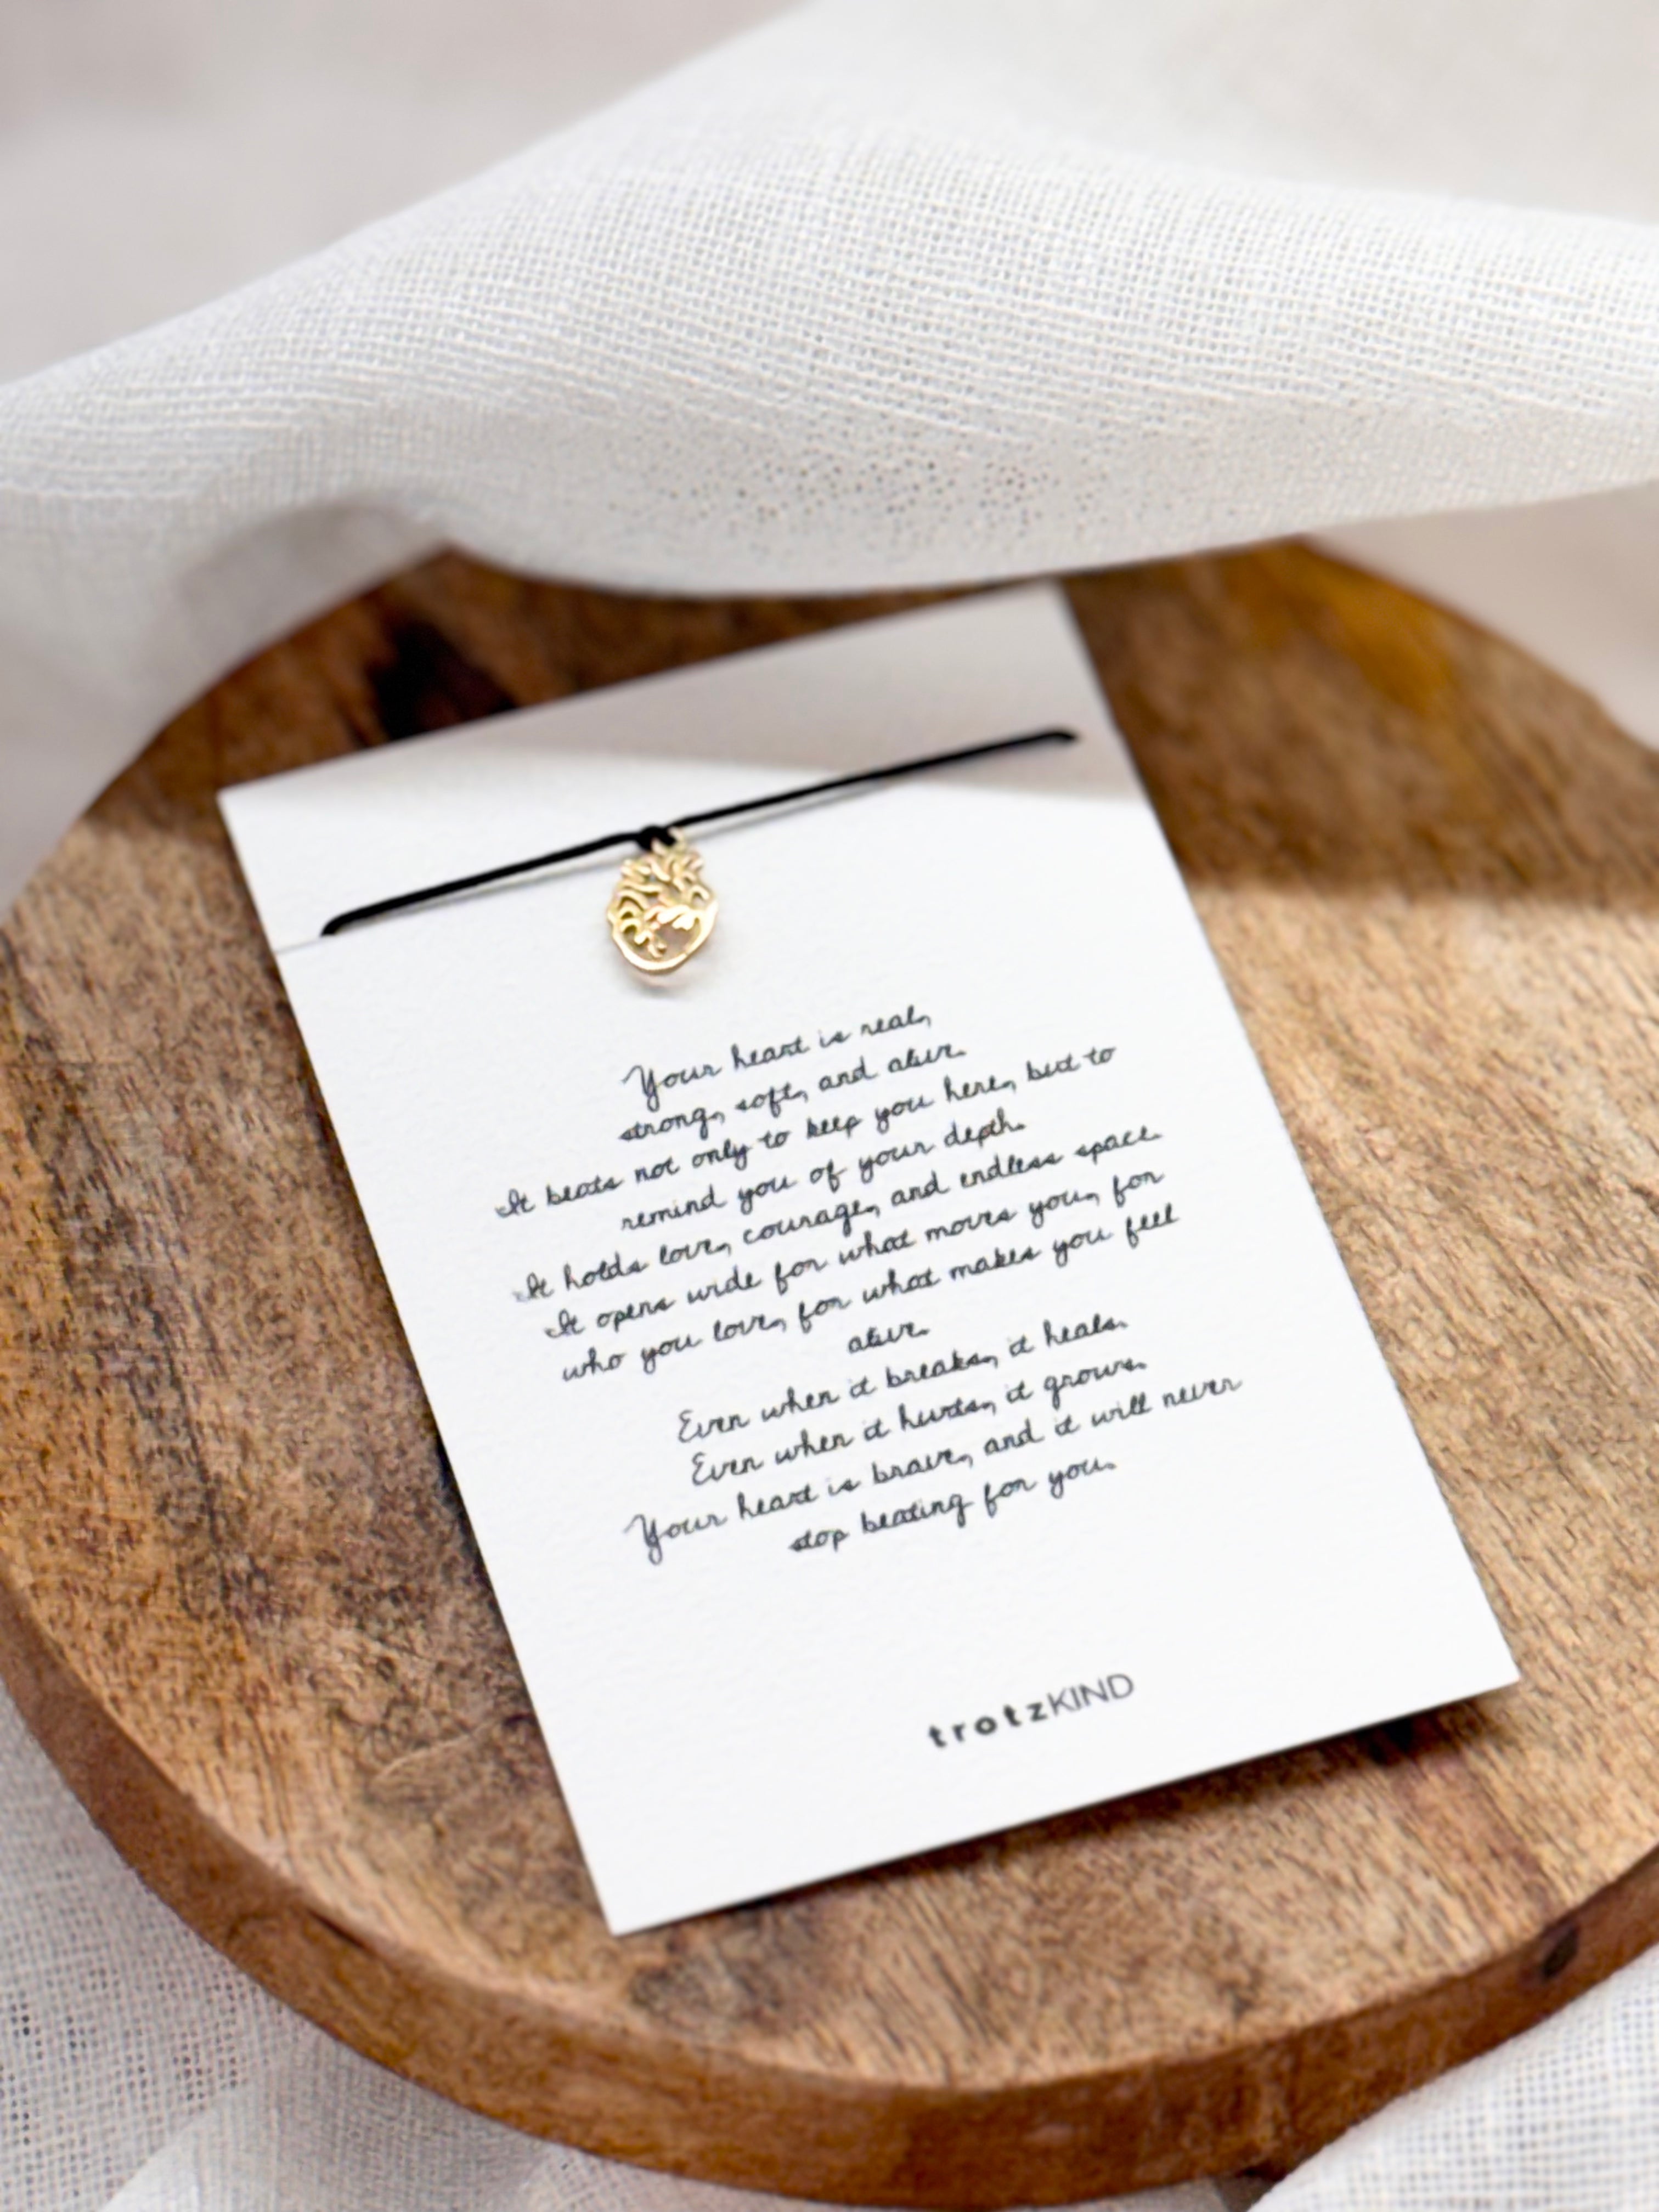 Your heart is real,
strong, soft, and alive.
It beats not only to keep you here, but to
remind you of your depth.
It holds love, courage, and endless space.
It opens wide for what moves you, for
who you love, for what makes you feel
alive.
Even when it breaks, it heals.
Even when it hurts, it grows.
Your heart is brave, and it will never
stop beating for you.
trotzKIND